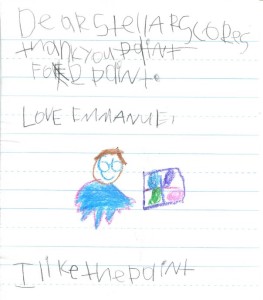 Dear Stellar Scores
thank you paint
FOR paint.
LOVE EMMANUEL
I like the paint